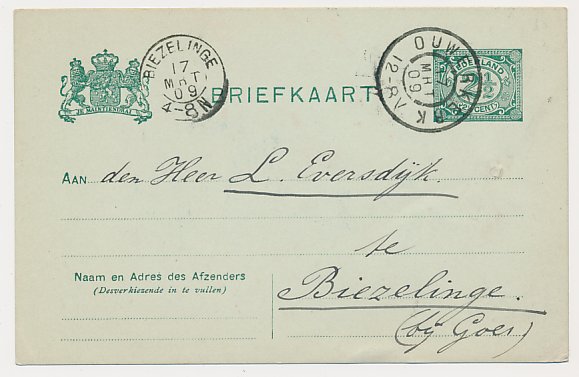 BIEZELINGE
17
MRT
09
4-8N
OUWERKERK
MRT
09
12-8
NEDERLAND
CENT
JE MAINTIENDRAI
BRIEFKAART
AAN den Heer L. Eversdijk.
te
Naam en Adres des Afzenders
(Desverkiezende in te vullen)
Biezelinge.
(bij Goes)